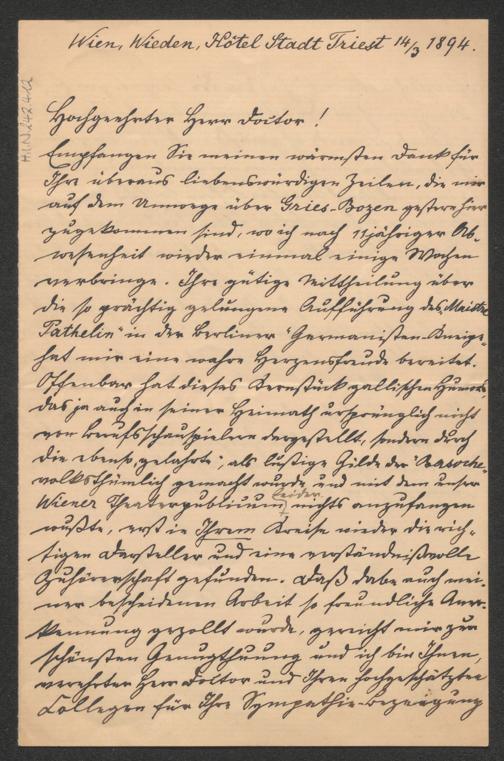 Wien, Wieden, Hôtel Stadt Triest 14/3 1894.
H.I.N. 242.412
Hochgeehrter Herr Doctor!
Empfangen Sie meinen wärmsten Dank für
Ihre überaus liebenswürdigen Zeilen, die mir
auf dem Umwege über Gries-Bozen gestern hier
zugekommen sind, wo ich nach 11jähriger Ab-
wesenheit wieder einmal einige Wochen
verbringe. Ihre gütige Mittheilung über
die so prächtig gelungene Aufführung des „Maistre
Pathelin" in der Berliner "Germanisten-Kneipe"
hat mir eine wahre Herzensfreude bereitet.
Offenbar hat dieses Kernstück gallischen Humors,
das ja auch in seiner Heimath ursprünglich nicht
von Berufsschauspielern dargestellt, sondern durch
die ebenso „gelahrte", als lustige Gilde der "Basoche"
volksthümlich gemacht wurde, und mit dem unser
Wiener Theaterpublicum leider nichts anzufangen
wußte, erst in Ihrem Kreise wieder die rich-
tigen Darsteller und eine verständnißvolle
Zuhörerschaft gefunden. Daß dabei auch mei-
ner bescheidenen Arbeit so freundliche Aner-
kennung gezollt wurde, gereicht mir zur
schönsten Genugthuung und ich bin Ihnen,
verehrter Herr Doktor und Ihren hochgeschätzten
Collegen für Ihre Sympathie-Bezeugung